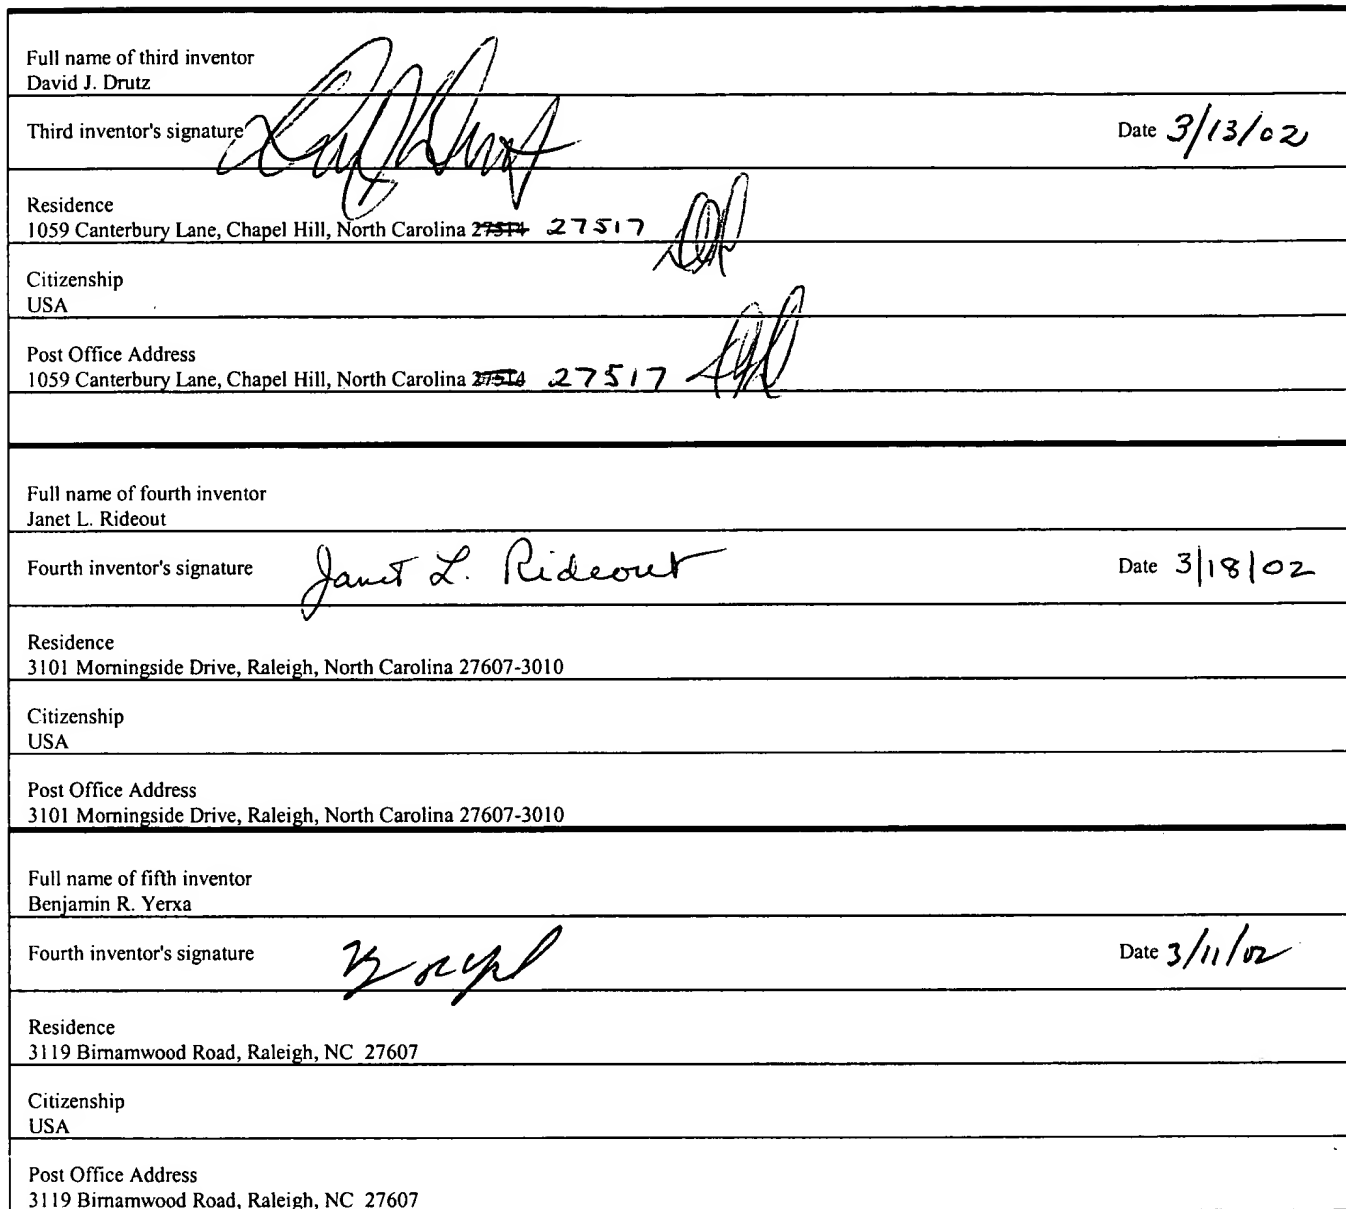 Full name of third inventor
David J. Drutz
Third inventor's signature
Date 3/13/02
Residence
1059 Canterbury Lane, Chapel Hill, North Carolina 27514 27517
Citizenship
USA
Post Office Address
1059 Canterbury Lane, Chapel Hill, North Carolina 27514 27517
Full name of fourth inventor
Janet L. Rideout
Fourth inventor's signature Janet L. Rideout Date 3/18/02
Residence
3101 Morningside Drive, Raleigh, North Carolina 27607-3010
Citizenship
USA
Post Office Address
3101 Morningside Drive, Raleigh, North Carolina 27607-3010
Full name of fifth inventor
Benjamin R. Yerxa
Fourth inventor's signature Date 3/11/02
Residence
3119 Birnamwood Road, Raleigh, NC 27607
Citizenship
USA
Post Office Address
3119 Birnamwood Road, Raleigh, NC 27607